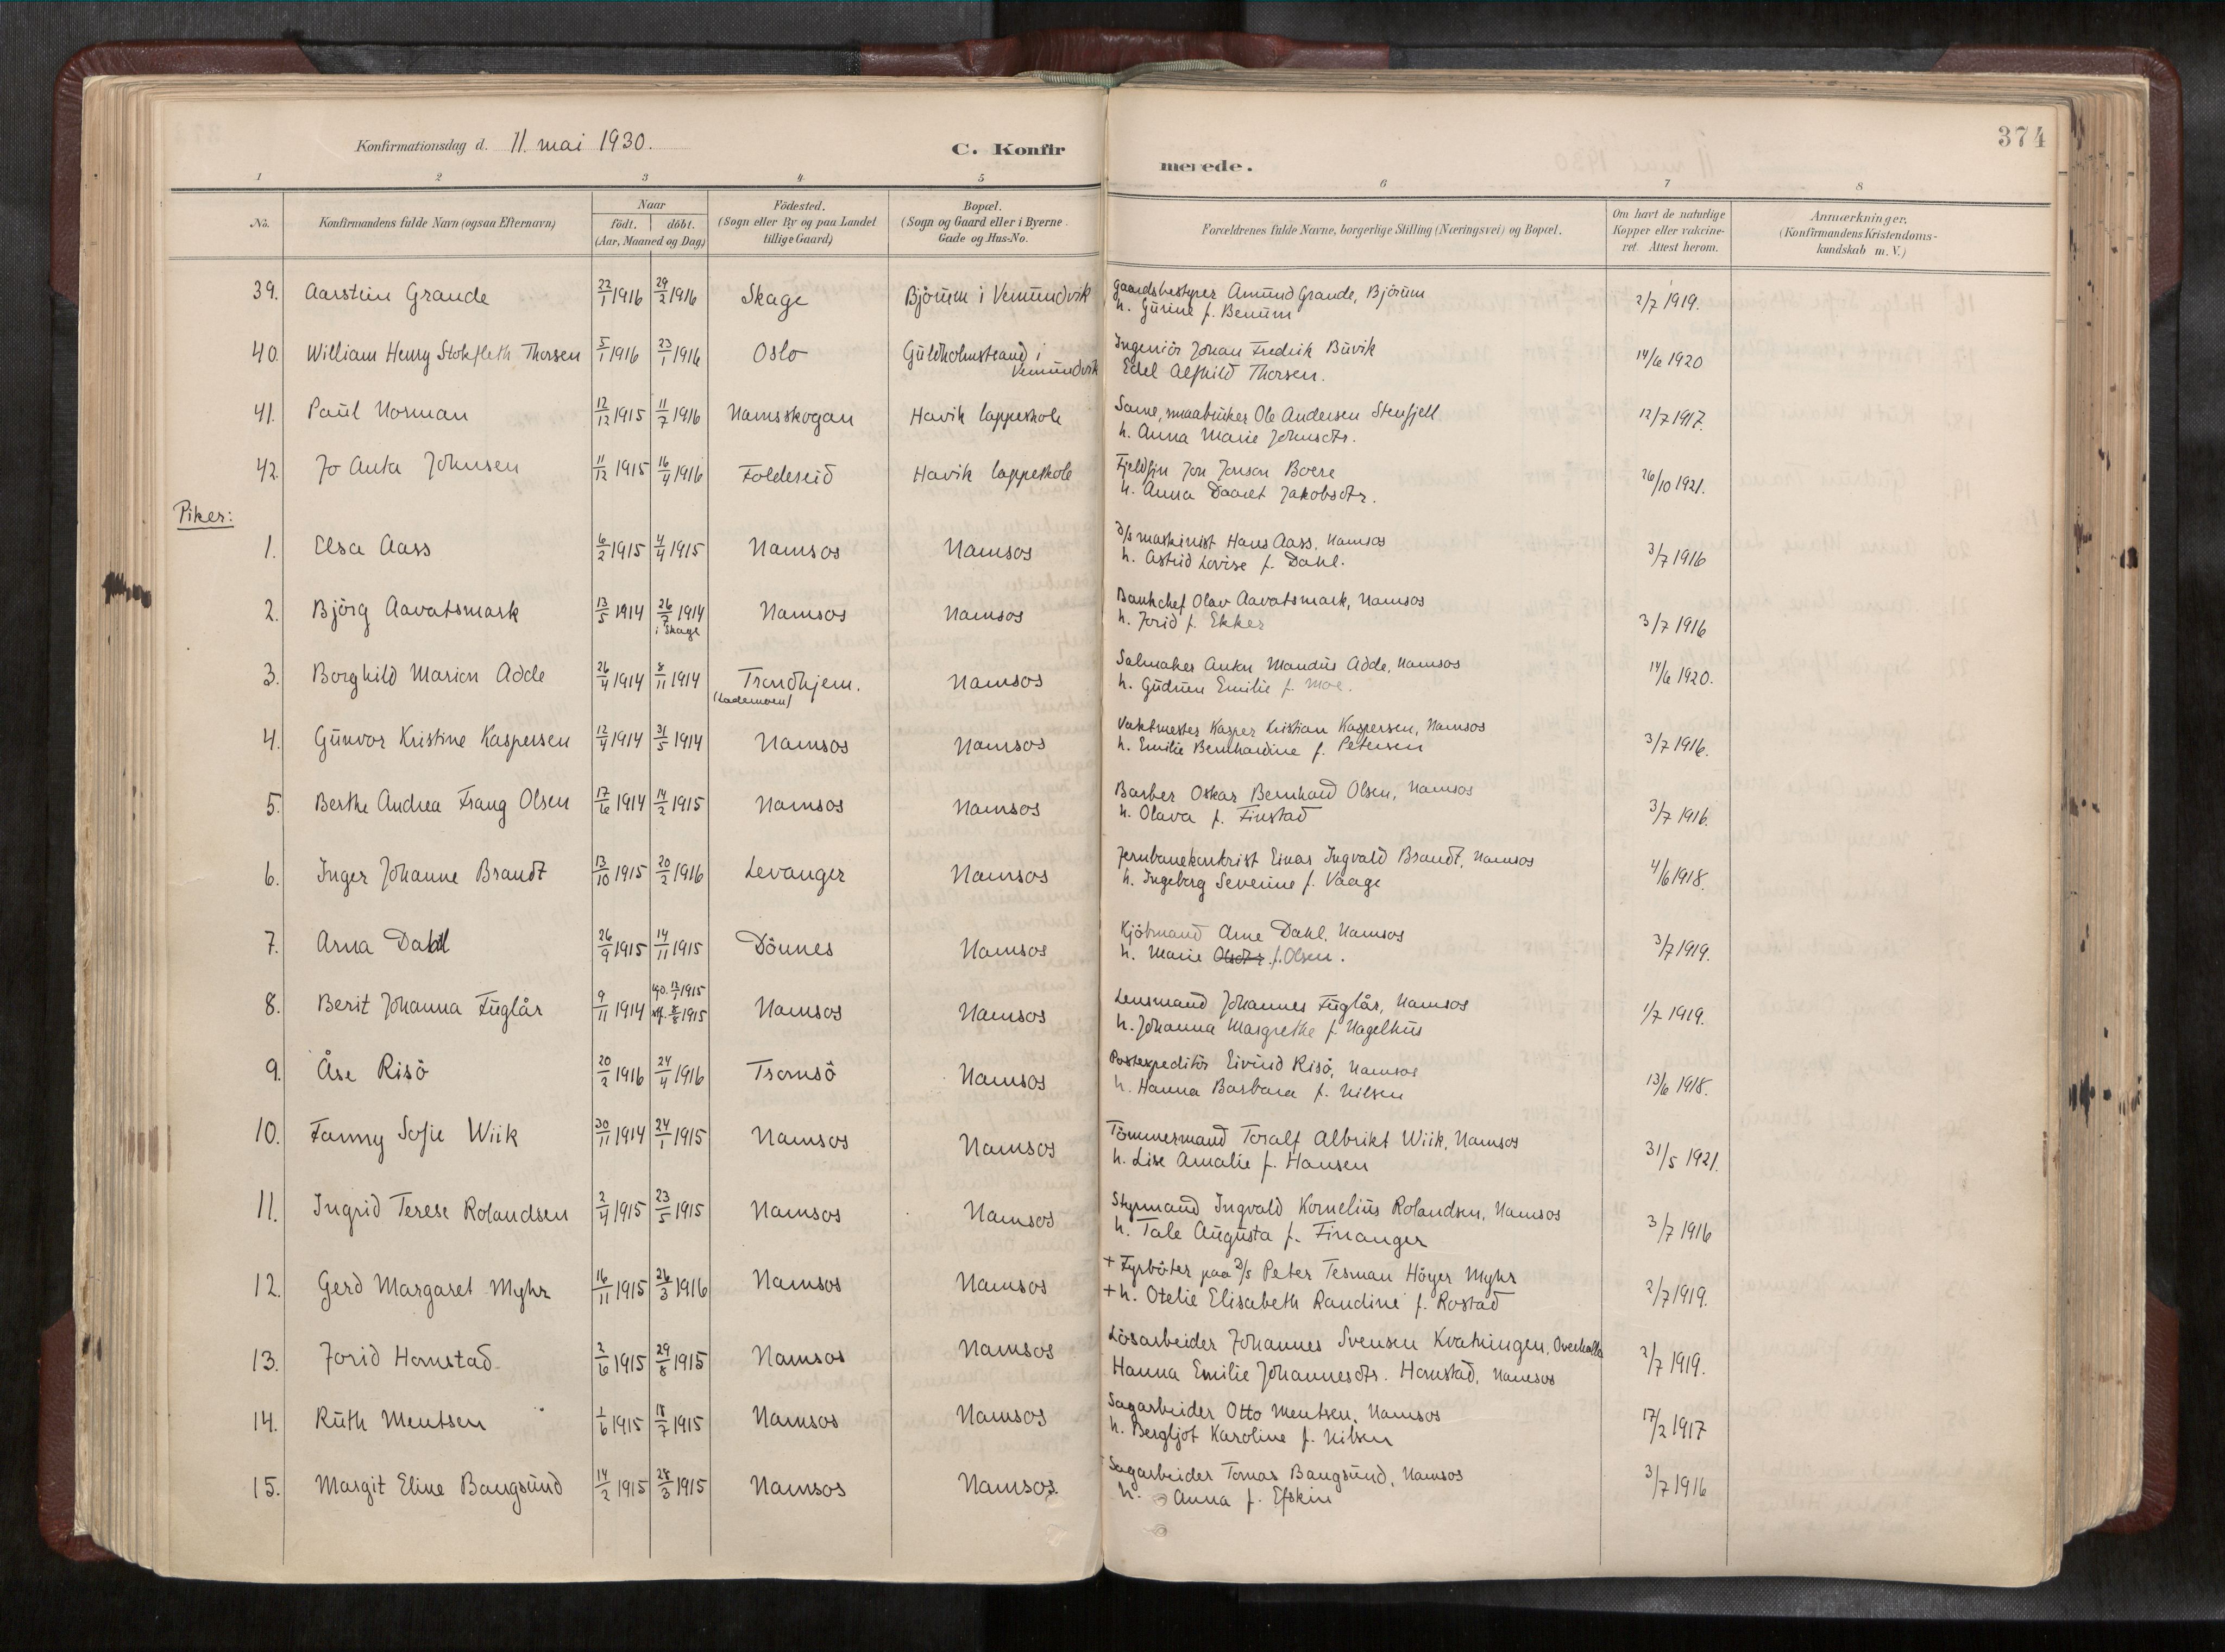 374
Konfirmationsdag d. 11. mai 1930.
C. Konfirmerede.
1 2 3 4 5 6 7 8
No. Konfirmandens fulde Navn (ogsaa Efternavn) Naar födt. döbt. (Aar, Maaned og Dag) Födested. (Sogn eller By og paa Landet tillige Gaard) Bopæl. (Sogn og Gaard eller i Byerne Gade og Hus-No. Forældrenes fulde Navne, borgerlige Stilling (Næringsvei) og Bopæl. Om havt de naturlige Kopper eller vakcineret. Attest herom. Anmærkninger, (Konfirmandens Kristendomskundskab m. V.)
39. Aarstein Grande 22/1 1916 29/2 1916 Skage Björum i Vemundvik Gaardsbestyrer Amund Grande, Bjørum 2/7 1919.
h. Gurine f. Benum
40. William Henry Stokfleth Thorsen 5/1 1916 23/1 1916 Oslo Guldholmstrand i Vemundvik Ingeniör Johan Fredrik Buvik 14/6 1920
Edel Alfhild Thorsen.
41. Paul Norman 12/12 1915 11/7 1916 Namsskogan Havik lappeskole Same, smaabruker Ole Andersen Stenfjell 12/7 1917.
h. Anna Marie Johnsdtr.
42. Jo Anta Johnsen 11/12 1915 16/4 1916 Foldereid Havik lappeskole Fjeldfin Jon Jonson Boere 26/10 1921.
h. Anna Daaret Jakobsdtr.
Piker:
1. Elsa Aass 6/2 1915 4/4 1915 Namsos Namsos d/s maskinist Hans Aass, Namsos 3/7 1916
h. Astrid Lovise f. Dahl.
2. Björg Aavatsmark 13/5 1914 26/7 1914 i Skage Namsos Namsos Bankchef Olav Aavatsmark, Namsos 3/7 1916
h. Jorid f. Ekker
3. Borghild Marion Adde 26/4 1914 8/11 1914 Trondhjem. (Lademoen) Namsos Salmaker Anton Mandius Adde, Namsos 14/6 1920.
h. Gudrun Emilie f. Moe.
4. Gunvor Kristine Kaspersen 12/4 1914 31/5 1914 Namsos Namsos Vaktmester Kasper Kristian Kaspersen, Namsos 3/7 1916.
h. Emilie Bernhardine f. Petersen
5. Berthe Andrea Frang Olsen 17/6 1914 14/2 1915 Namsos Namsos Barber Oskar Bernhard Olsen, Namsos 3/7 1916.
h. Olava f. Finstad
6. Inger Johanne Brandt 13/10 1915 20/2 1916 Levanger Namsos Jernbanekontorist Einar Ingvald Brandt, Namsos 4/6 1918.
h. Ingeborg Severine f. Vaage
7. Arna Dahl 26/9 1915 14/11 1915 Dönnes Namsos Kjöbmand Arne Dahl, Namsos 3/7 1919.
h. Marie Olsdtr. f. Olsen.
8. Berit Johanna Fuglår 9/11 1914 1915 1915 Namsos Namsos Lensmand Johannes Fuglår, Namsos 1/7 1919.
h. Johanna Margrethe f. Nagelhus
9. Åse Risö 20/2 1916 24/4 1916 Tromsö Namsos Postexpeditör Eivind Risö, Namsos 13/6 1918.
h. Hanna Barbara f. Nilsen
10. Fanny Sofie Wiik 30/11 1914 24/1 1915 Namsos Namsos Tömmermand Toralf Albrikt Wiik, Namsos 31/5 1921.
h. Lise Amalie f. Hansen
11. Ingrid Terese Rolandsen 2/4 1915 23/5 1915 Namsos Namsos Styrmand Ingvald Kornelius Rolandsen, Namsos 3/7 1916
h. Tale Augusta f. Finanger
12. Gerd Margaret Myhr 16/11 1915 26/3 1916 Namsos Namsos + Fyrböter paa D/S Peter Tesman Höyer Myhr 2/7 1919.
+ h. Otelie Elisabeth Randine f. Rostad
13. Jorid Homstad 2/6 1915 29/8 1915 Namsos Namsos Lösarbeider Johannes Svensen Kvatningen, Overhalla 2/7 1919.
Hanna Emilie Johannesdtr. Homstad, Namsos
14. Ruth Mentsen 1/6 1915 18/7 1915 Namsos Namsos Sagarbeider Otto Mentsen, Namsos 17/2 1917
h. Bergljot Karoline f. Nilsen
15. Margit Eline Bangsund 14/2 1915 28/3 1915 Namsos Namsos Sagarbeider Tomas Bangsund, Namsos 3/7 1916
h. Anna f. Efskin